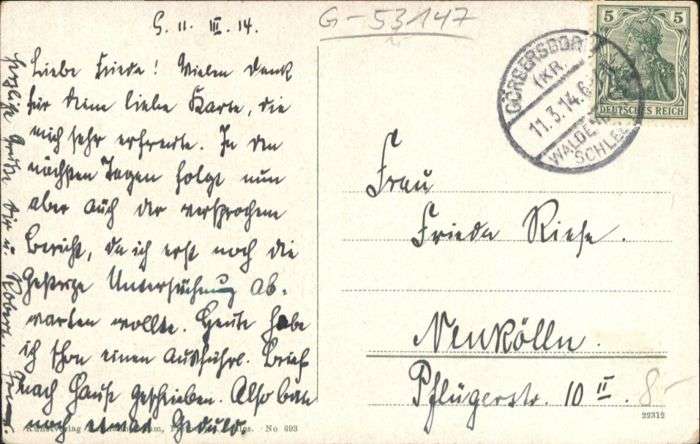 G. 11. III. 14.
G-53147
Liebe Frieda! Vielen Dank
für deine liebe Karte, die
mich sehr erfreute. In den
nächsten Tagen folgt nun
aber auch der versprochene
Bericht, da ich erst noch die
gestrige Untersuchung ab-
warten wollte. Heute habe
ich schon einen ausführl. Brief
nach Hause geschrieben. Also bitte
noch etwas Geduld.
Herzliche Grüße Dir u. Robert
GÖRBERSDORF
(KR.
11.3.14.6
WALDEN
SCHLES
5 5
DEUTSCHES REICH
Frau
Frieda Riese.
Neukölln.
Pflügerstr. 10 II
8-
No 693
22312